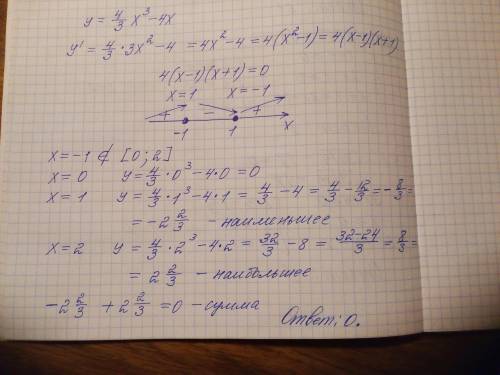 y = 4/3 x³ - 4x
y' = 4/3 · 3x² - 4 = 4x² - 4 = 4(x² - 1) = 4(x-1)(x+1)
4(x-1)(x+1) = 0
x = 1 x = -1
+ - +
-1 1 x
x = -1 ∉ [0; 2]
x = 0 y = 4/3 · 0³ - 4·0 = 0
x = 1 y = 4/3 · 1³ - 4·1 = 4/3 - 4 = 4/3 - 12/3 = -8/3 =
= -2 2/3 - наименьшее
x = 2 y = 4/3 · 2³ - 4·2 = 32/3 - 8 = (32-24)/3 = 8/3 =
= 2 2/3 - наибольшее
-2 2/3 + 2 2/3 = 0 - сумма
Ответ: 0.